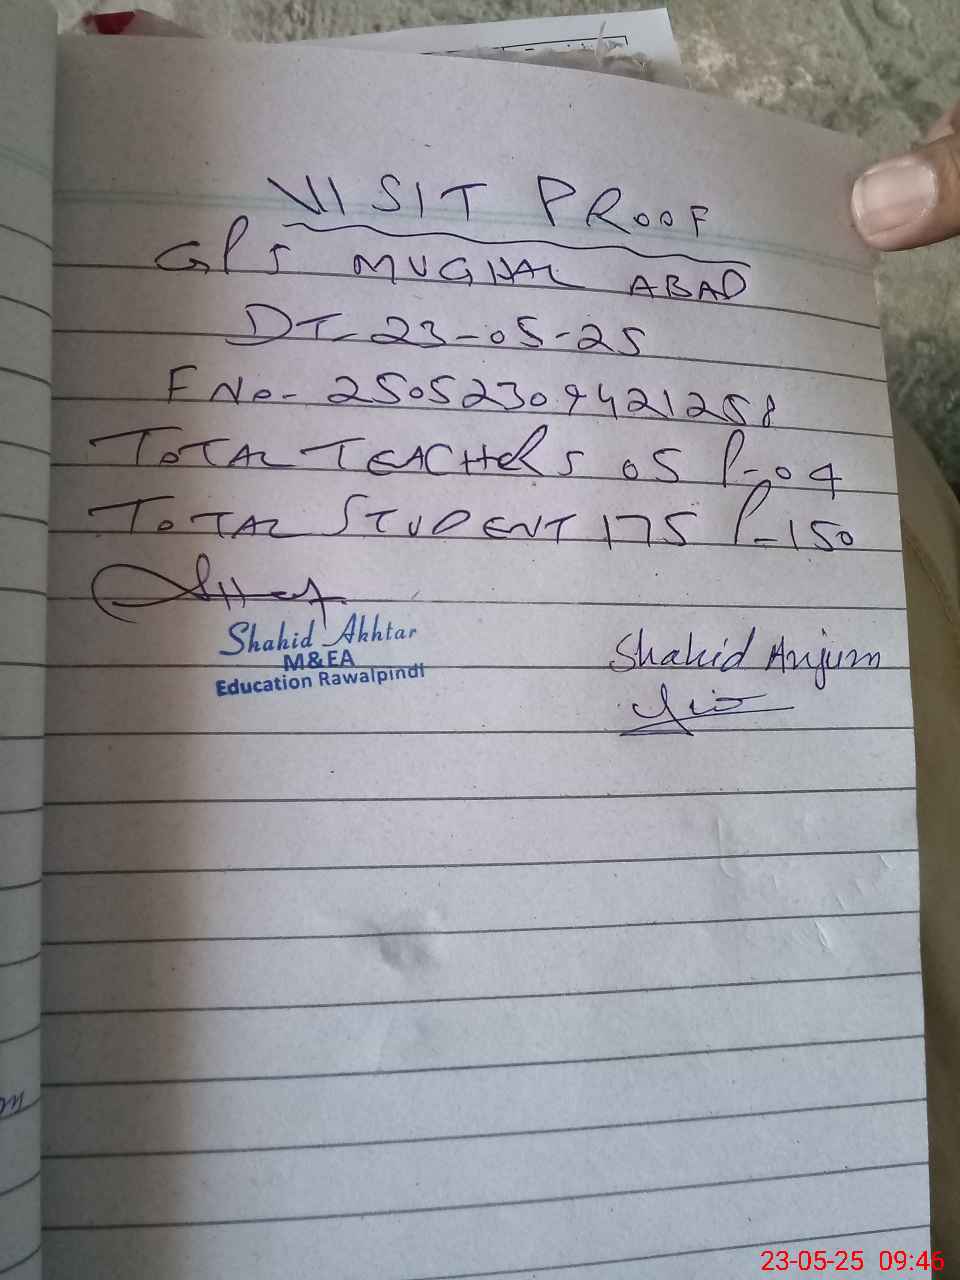 VISIT PROOF
GPS MUGHAL ABAD
DT- 23-05-25
F No- 25052309421258
TOTAL TEACHERS 05 P-04
TOTAL STUDENT 175 P-150
Shahid Akhtar
M&EA
Education Rawalpindi
Shahid Anjum
23-05-25 09:46